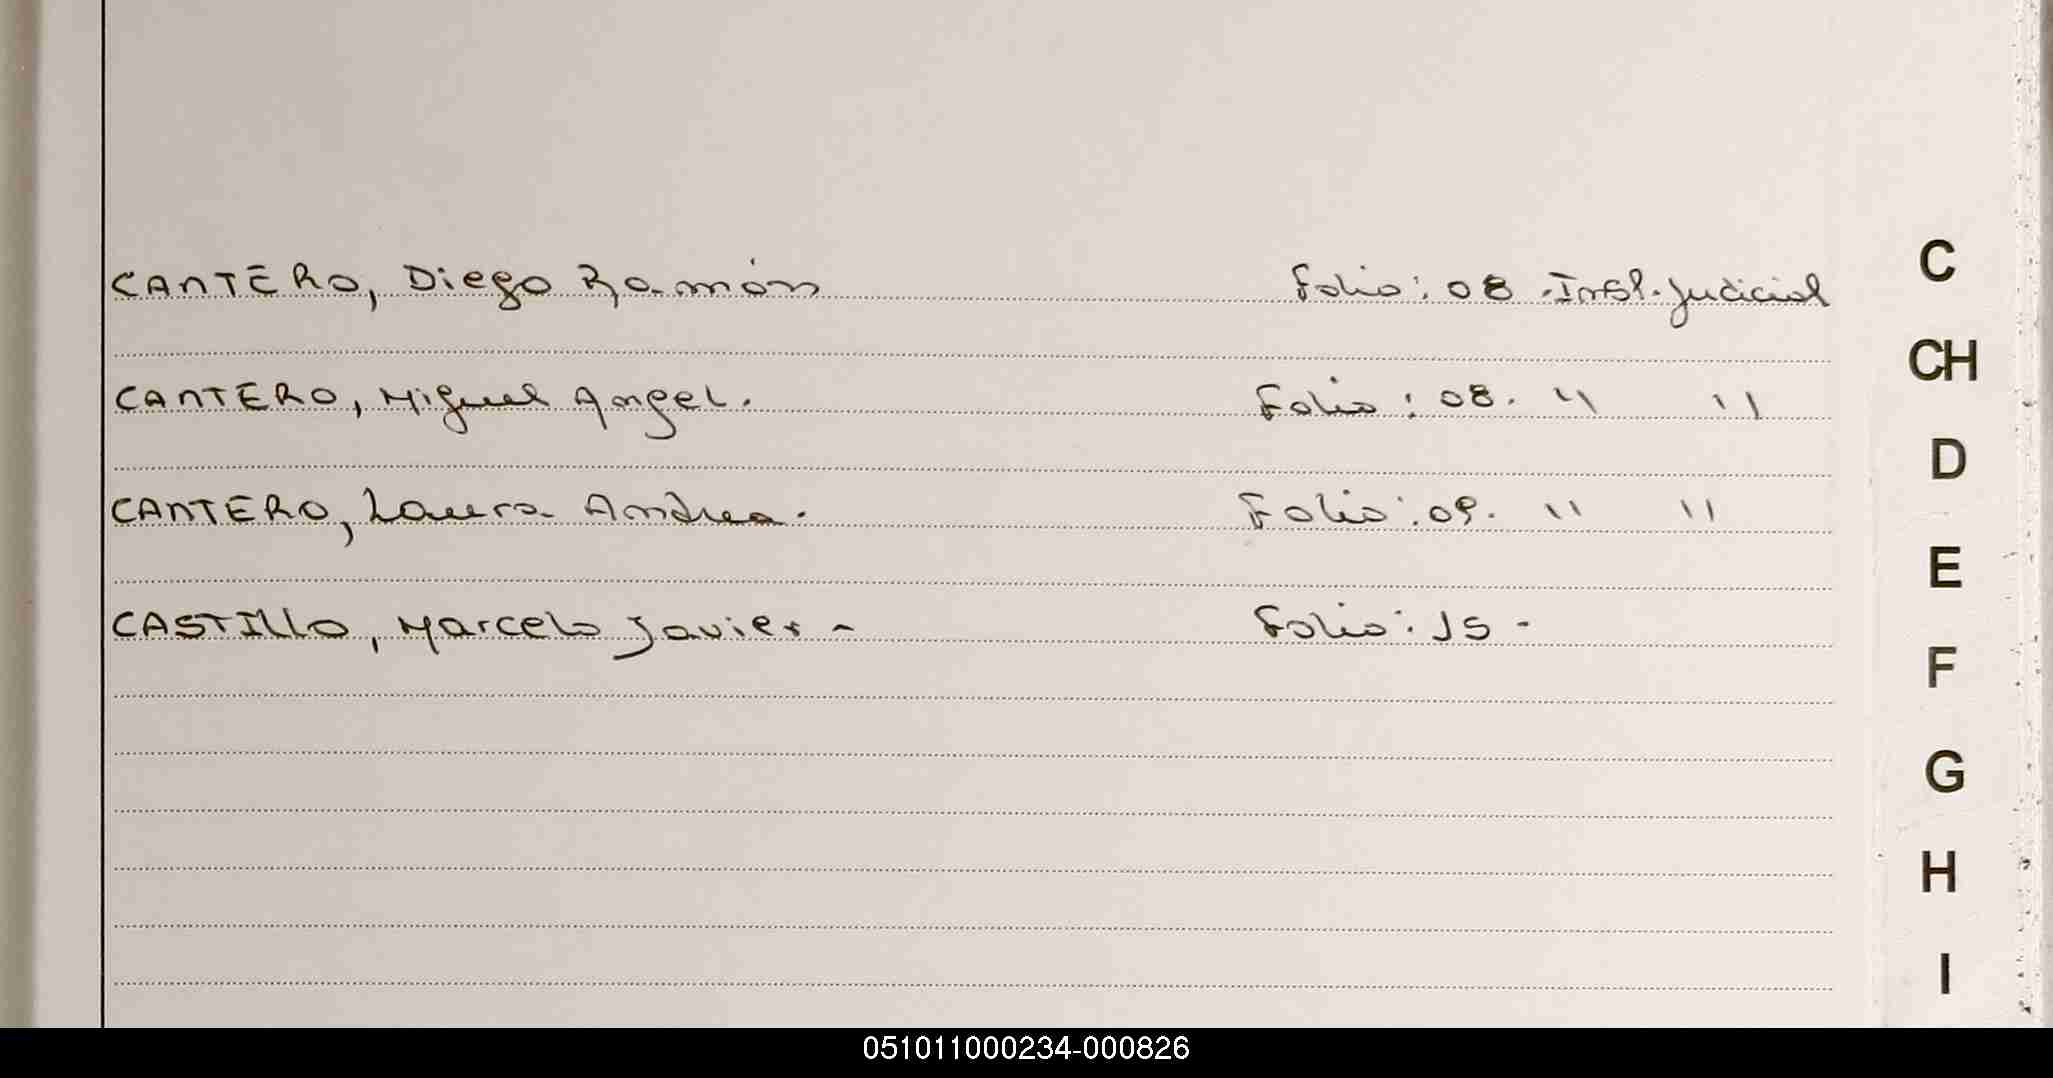 CANTERO, Diego Ramón Folio: 08 .Insl. Judicial
CANTERO, Miguel Angel. Folio: 08. " "
CANTERO, Laura Andrea. Folio: 09. " "
CASTILLO, Marcelo Javier - Folio: 15 -
C
CH
D
E
F
G
H
I
051011000234-000826